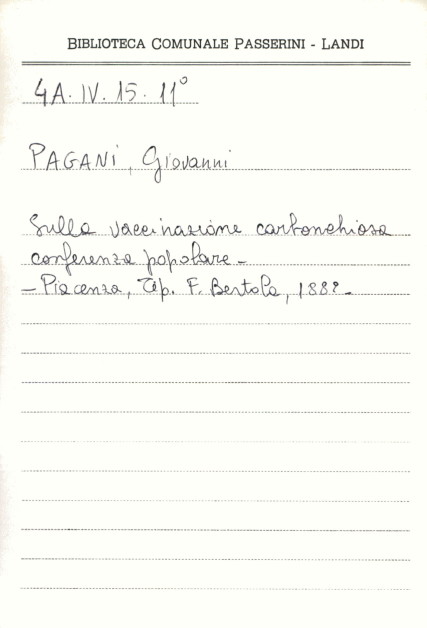 BIBLIOTECA COMUNALE PASSERINI - LANDI
4A. IV. 15. 11°
PAGANI, Giovanni
Sulla vaccinazione carbonchiosa
conferenza popolare -
- Piacenza, Tip. F. Bertola, 188?-